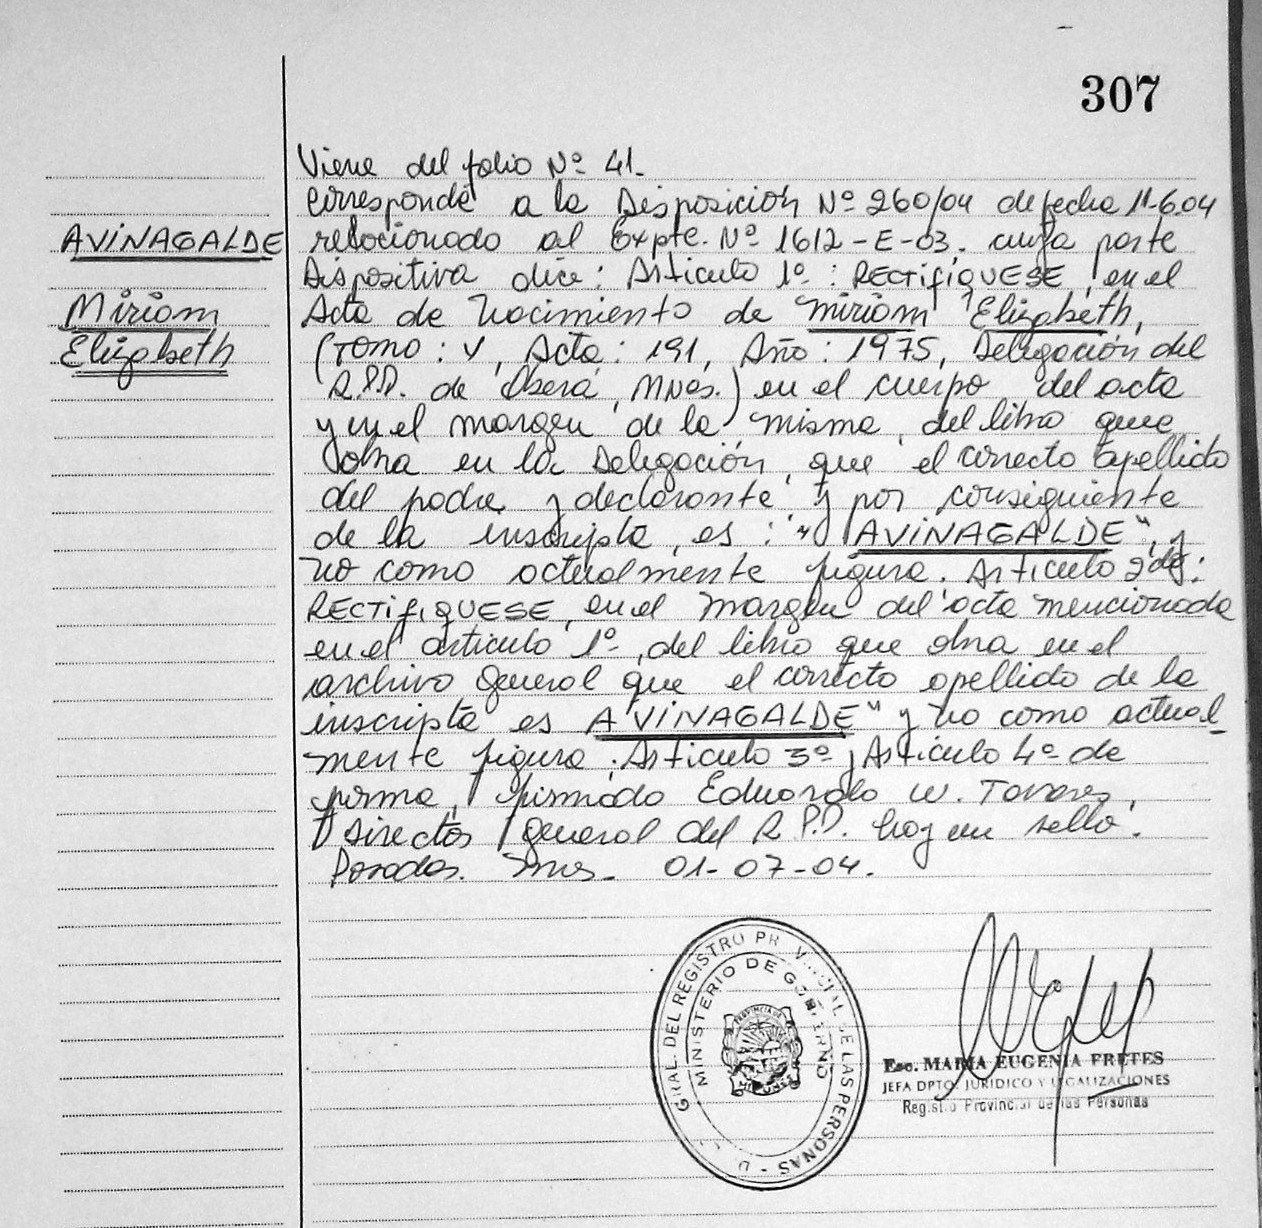 307
AVINAGALDE
Miriam
Elizabeth
Viene del folio Nº 41.
Corresponde a la Disposición Nº 260/04 de fecha 11-6-04
relacionado al Expte. Nº 1612-E-03. cuya parte
Dispositiva dice: Artículo 1º: RECTIFIQUESE, en el
Acta de Nacimiento de Miriam Elizabeth,
(Tomo: V, Acta: 191, Año: 1975, Delegación del
R.P.P. de Oberá, Mnes.) en el cuerpo del acta
y en el margen de la misma, del libro que
obra en la Delegación, que el correcto apellido
del padre y declarante, y por consiguiente
de la inscripta, es: "AVINAGALDE", y
no como actualmente figura. Artículo 2do:
RECTIFIQUESE, en el margen del acta mencionada
en el artículo 1º, del libro que obra en el
archivo general que el correcto apellido de la
inscripta es AVINAGALDE" y no como actual-
mente figura. Artículo 3º y Artículo 4º de
forma, firmado Eduardo W. Tavares,
Director general del R.P.P. hay un sello.
Posadas. Mnes. 01-07-04.
GRAL. DEL REGISTRO PROVINCIAL DE LAS PERSONAS
MINISTERIO DE GOBIERNO
PROVINCIA DE
MISIONES
Esc. MARIA EUGENIA FRETES
JEFA DPTO. JURIDICO Y LEGALIZACIONES
Registro Provincial de las Personas